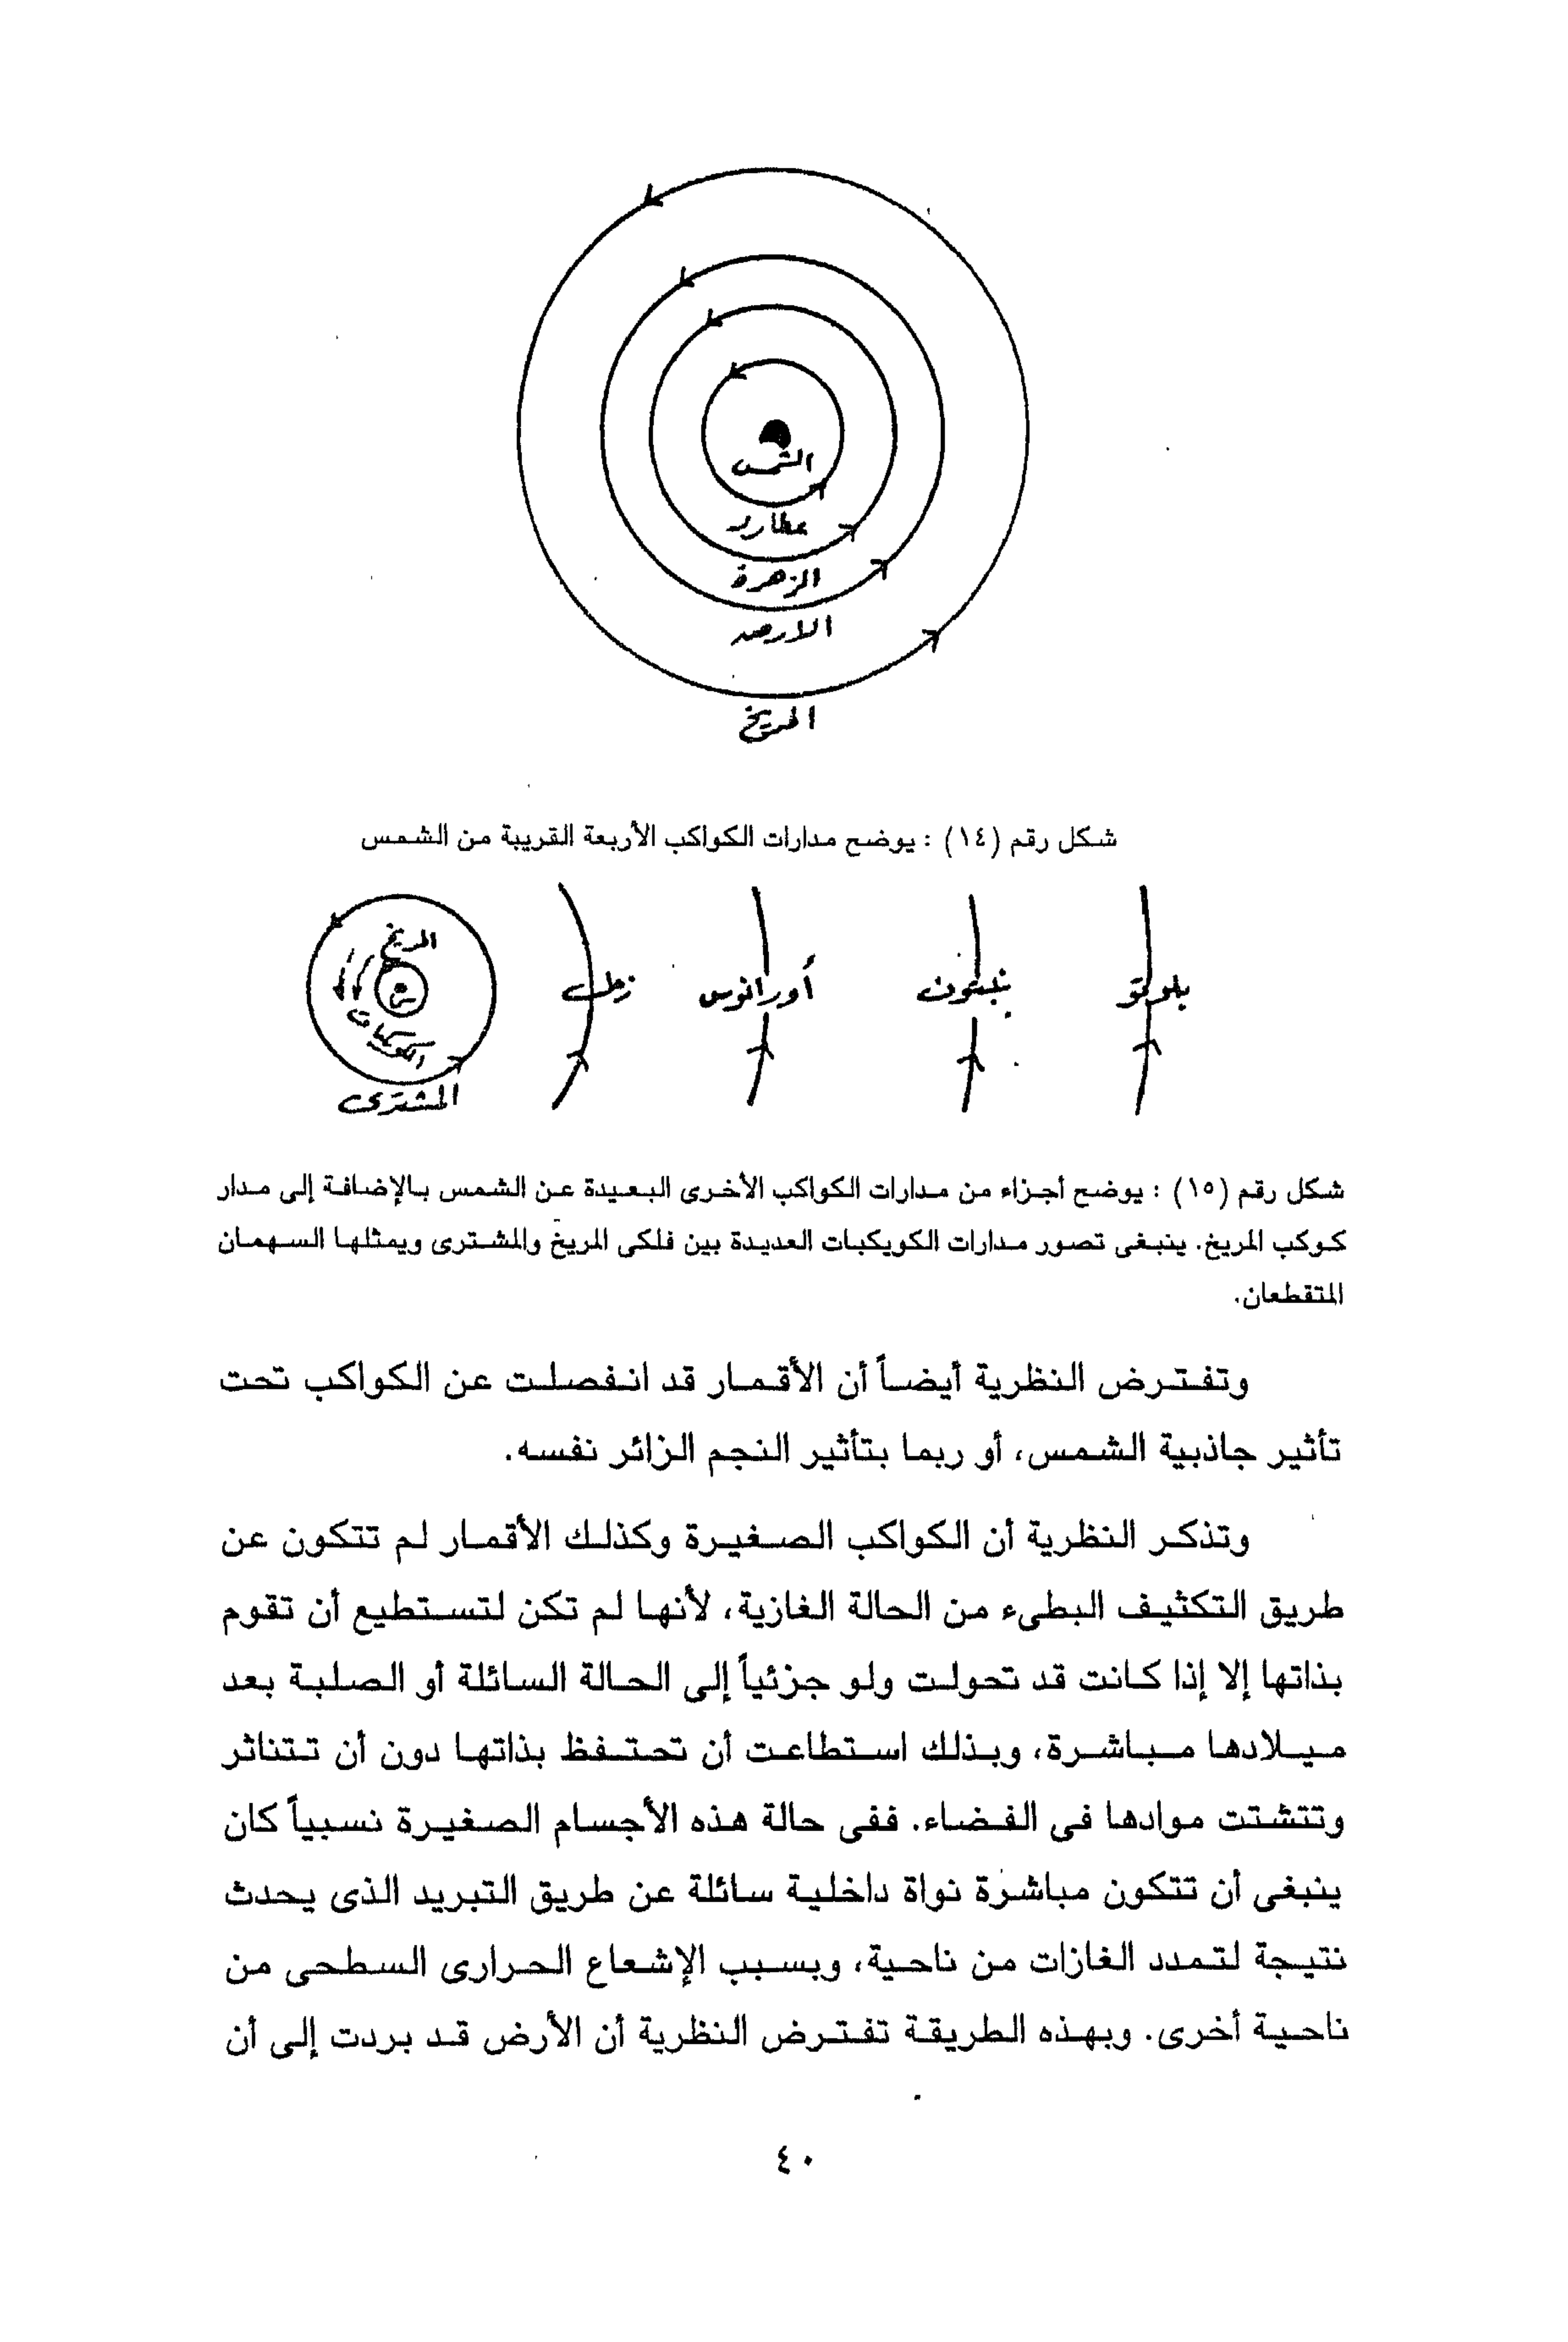 الشمس
عطارد
الزهرة
الارض
المريخ
شكل رقم (١٤) : يوضح مدارات الكواكب الأربعة القريبة من الشمس
المريخ
ش
الكويكبات
المشترى
زحل
أورانوس
نبتون
بلوتو
شكل رقم (١٥) : يوضح أجزاء من مدارات الكواكب الأخرى البعيدة عن الشمس بالإضافة إلى مدار
كوكب المريخ. ينبغى تصور مدارات الكويكبات العديدة بين فلكى المريخ والمشترى ويمثلها السهمان
المتقطعان.
وتفترض النظرية أيضاً أن الأقمار قد انفصلت عن الكواكب تحت
تأثير جاذبية الشمس، أو ربما بتأثير النجم الزائر نفسه.
وتذكر النظرية أن الكواكب الصغيرة وكذلك الأقمار لم تتكون عن
طريق التكثيف البطىء من الحالة الغازية، لأنها لم تكن لتستطيع أن تقوم
بذاتها إلا إذا كانت قد تحولت ولو جزئياً إلى الحالة السائلة أو الصلبة بعد
ميلادها مباشرة، وبذلك استطاعت أن تحتفظ بذاتها دون أن تتناثر
وتتشتت موادها فى الفضاء. ففى حالة هذه الأجسام الصغيرة نسبياً كان
ينبغى أن تتكون مباشرة نواة داخلية سائلة عن طريق التبريد الذى يحدث
نتيجة لتمدد الغازات من ناحية، وبسبب الإشعاع الحرارى السطحى من
ناحية أخرى. وبهذه الطريقة تفترض النظرية أن الأرض قد بردت إلى أن
٤٠